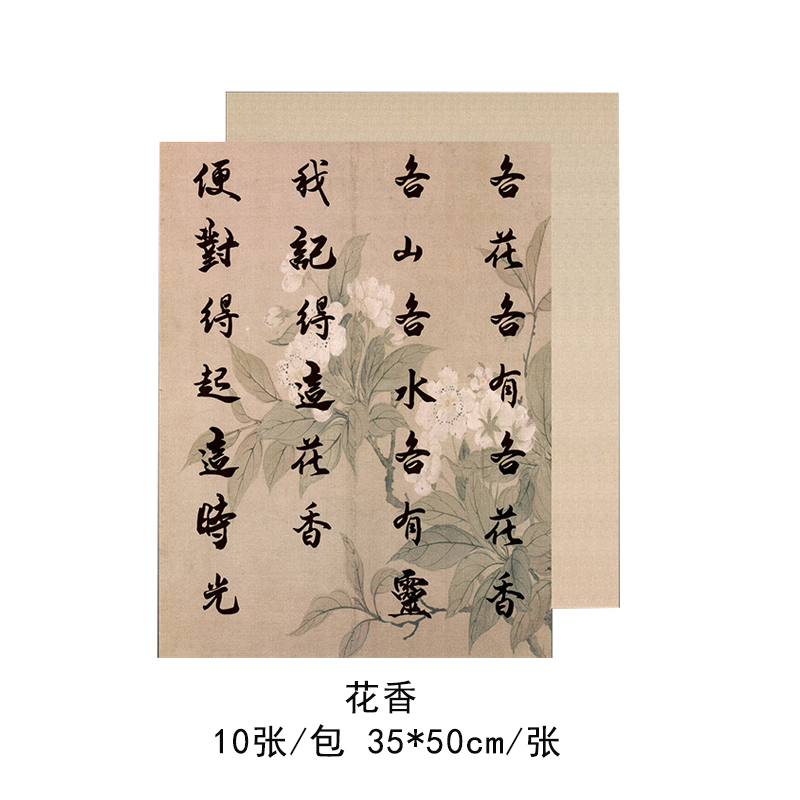 各花各有各花香
各山各水各有靈
我記得這花香
便對得起這時光
花香
10张/包 35*50cm/张